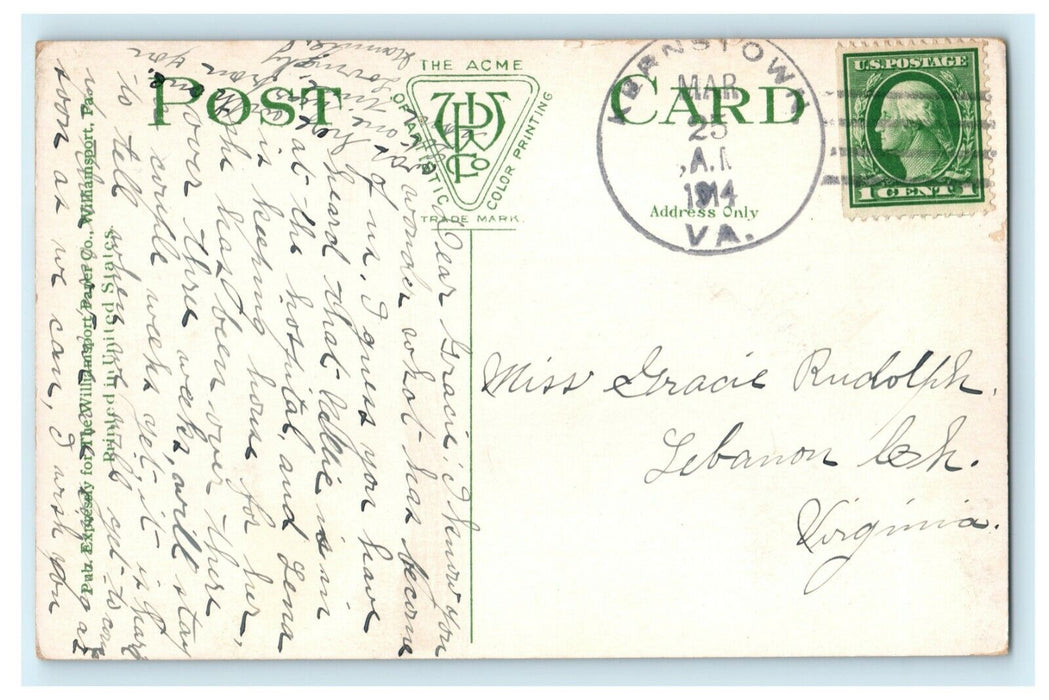 POST CARD
THE ACME
OF ARTISTIC
COLOR PRINTING
TRADE MARK.
KERNSTOWN
MAR
25
A.M
1914
VA.
Address Only
U.S. POSTAGE
1 CENT 1
Miss Gracie Rudolph.
Lebanon Ch.
Virginia.
Dear Gracie: I know you
wonder what has become
of us, I guess you have
heard that Nellie is in
at the hospital, and Lena
is keeping house for her,
she has been over there
over three weeks, will stay
couple weeks yet, it is hard
to tell when we will get to
soon as we can, I wish you
Pub. Expressly for The Williamsport Paper Co., Williamsport, Pa.
Printed in United States.